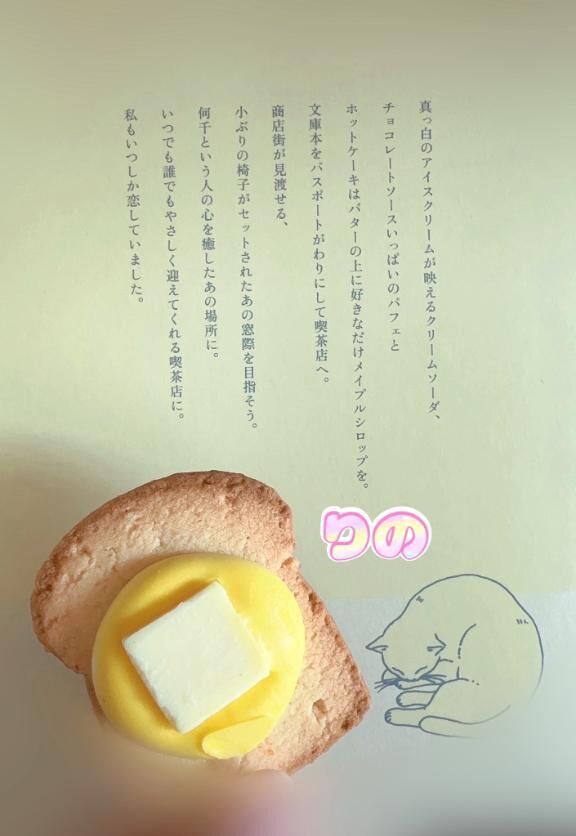 真っ白のアイスクリームが映えるクリームソーダ、
チョコレートソースいっぱいのパフェと
ホットケーキはバターの上に好きなだけメイプルシロップを。
文庫本をパスポートがわりにして喫茶店へ。
商店街が見渡せる、
小ぶりの椅子がセットされたあの窓際を目指そう。
何千という人の心を癒したあの場所に。
いつでも誰でもやさしく迎えてくれる喫茶店に。
私もいつしか恋していました。
りの